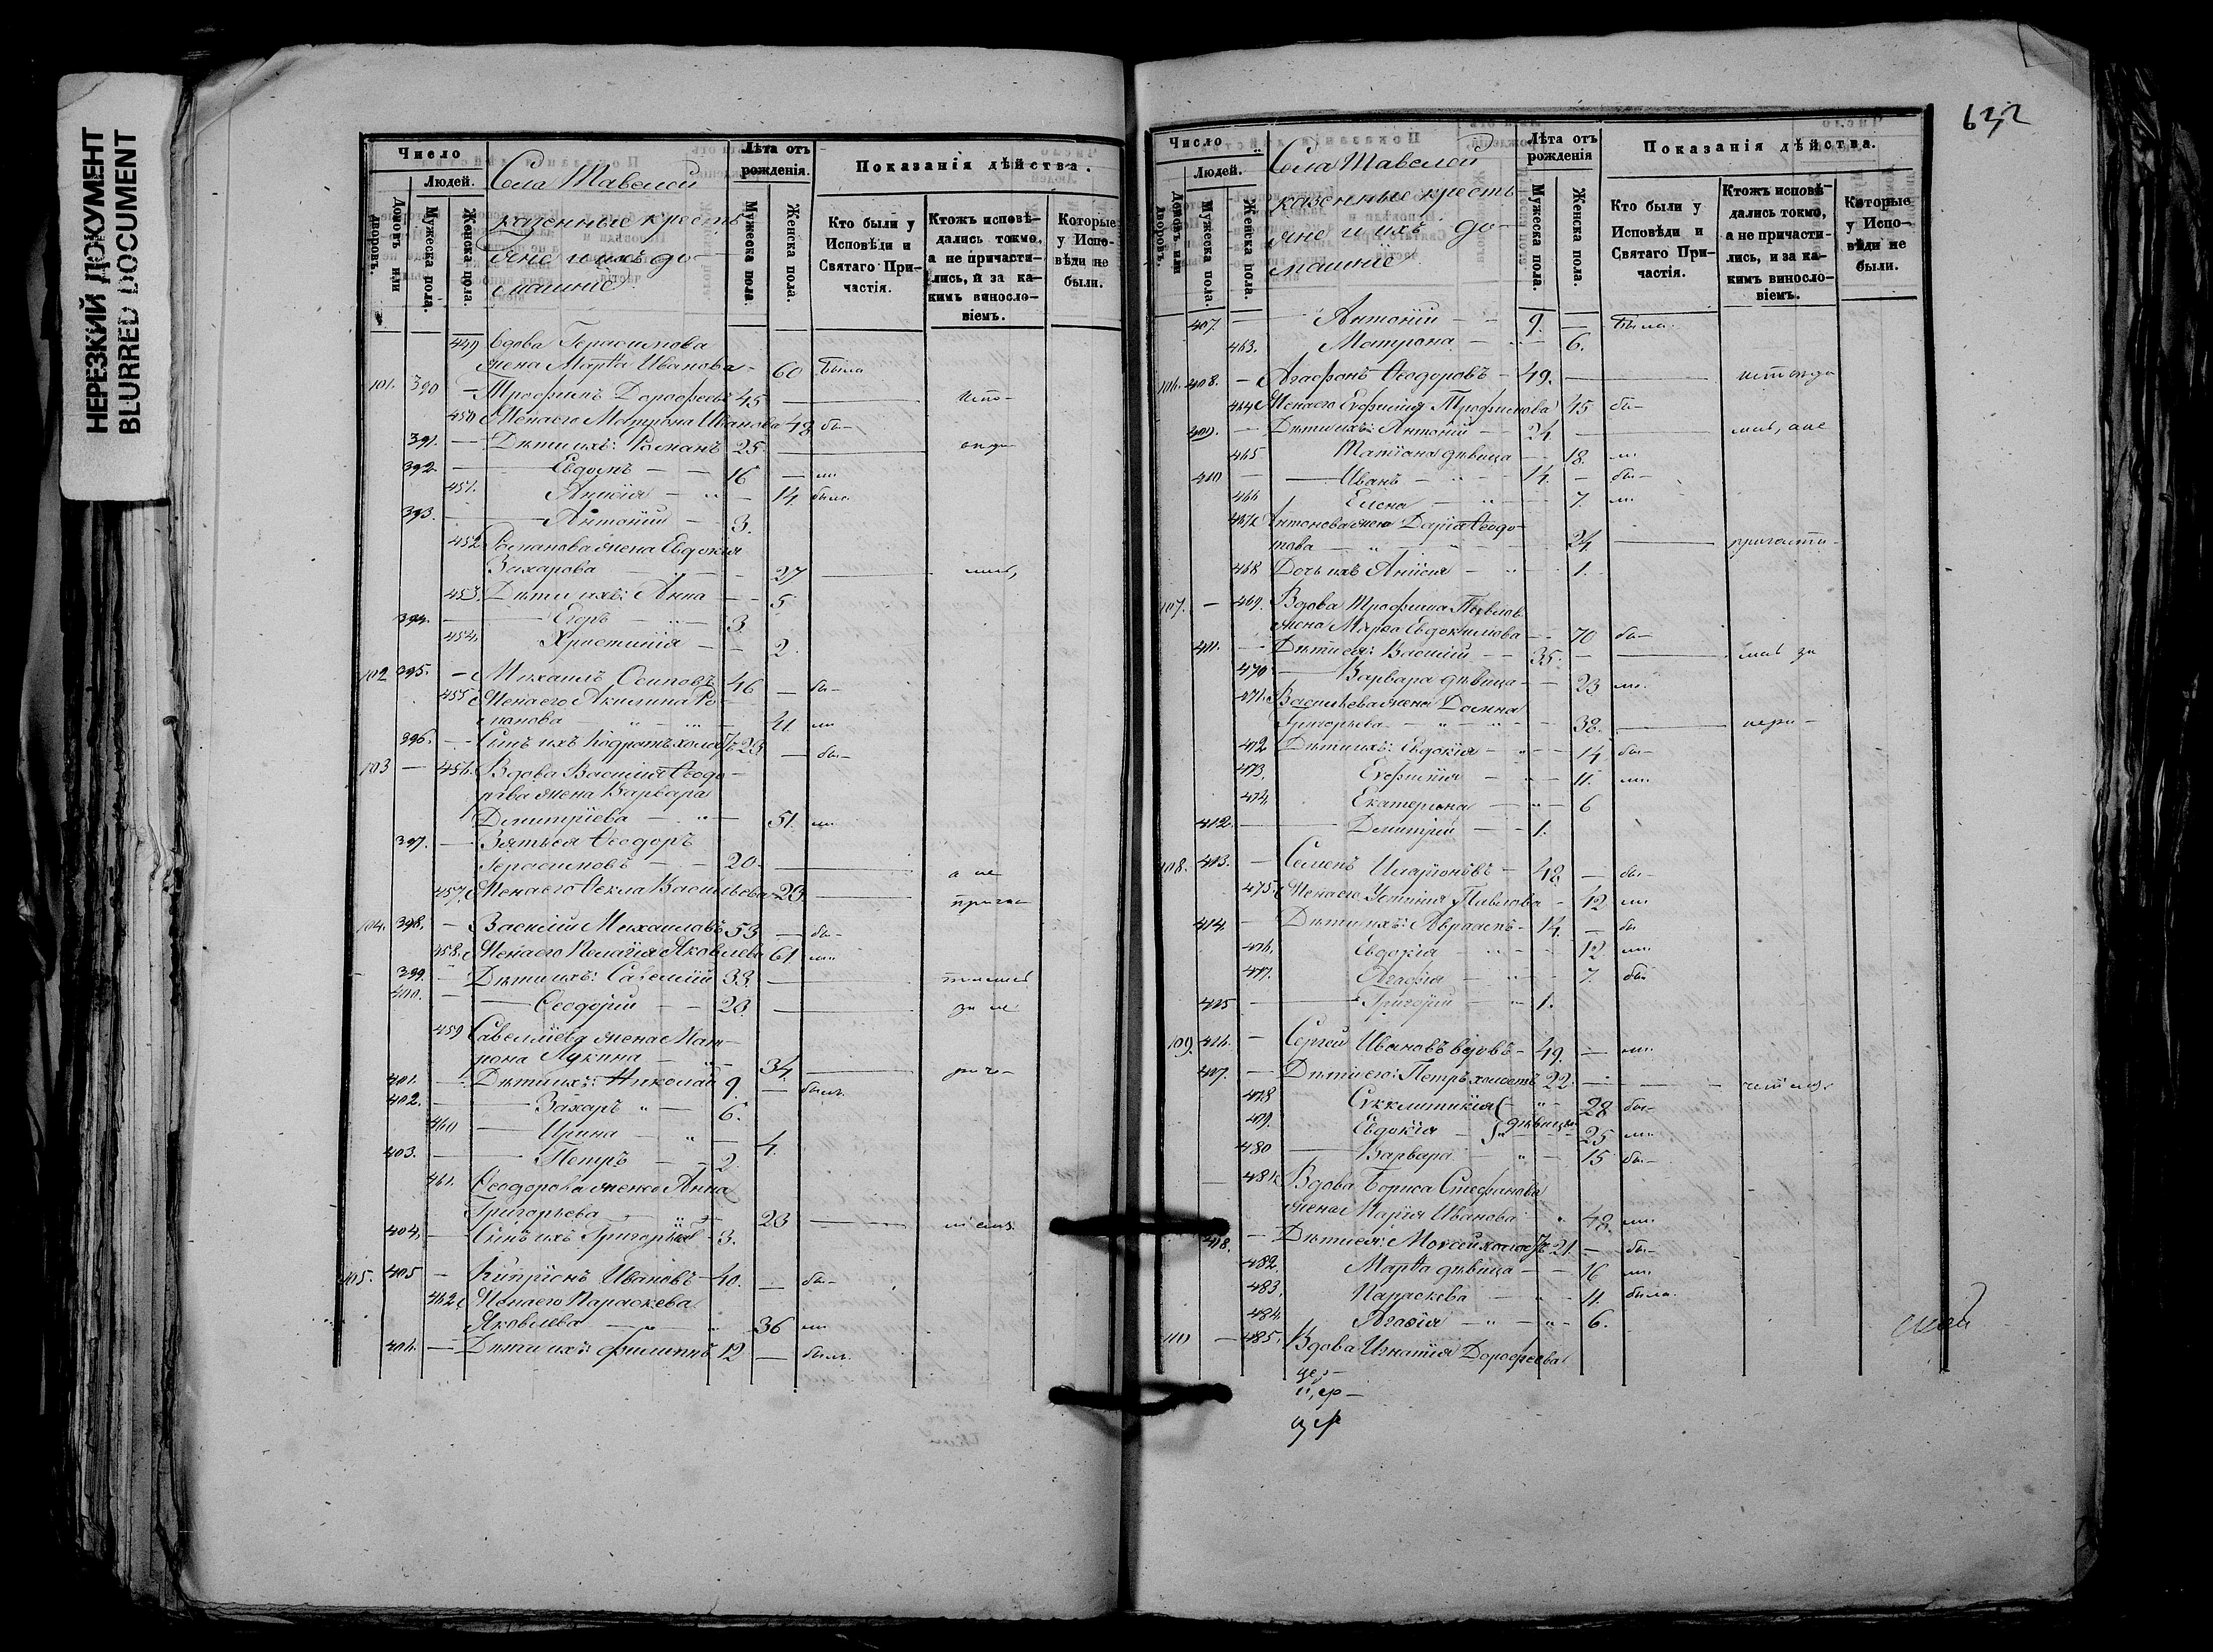 НЕРЕЗКИЙ ДОКУМЕНТ
BLURRED DOCUMENT
Число
Людей.
Домовъ или дворовъ.
Мужеска пола.
Женска пола.
Села Тавелей
казенные кресть-
яне и ихъ до-
машніе
Лѣта отъ рожденія.
Мужеска пола.
Женска пола.
Показанія дѣйства.
Кто были у Исповѣди и Святаго Причастія.
Ктожъ исповѣдались токмо, а не причастились, и за какимъ винословіемъ.
Которые у Исповѣди не были.
449 Вдова Герасимова
жена Марѳа Иванова - 60 была
101. 390 - Трофимъ Дорофеевъ 45
450 Жена его Матрона Иванова 48 бы-
391. - Дѣти ихъ: Романъ 25
392 - Евдокъ - 16
451. Анисія - 14 была
393. - Антоній - 3.
452 Романова жена Евдокія
Захарова - 27
453. Дѣти ихъ: Анна - 5
394. - Егоръ - 3
454. Христинія - 2
102 395. - Михаилъ Осиповъ 46 - бы-
455 Жена его Акилина Ро-
манова - 41 ли
396. - Сынъ ихъ Кодратъ холостъ 23 - бы-
103 - 456. Вдова Василія Ѳеодо-
рова жена Варвара
Димитріева - 51. ли
397. - Зять ея Ѳеодоръ
Герасимовъ - 20 - а не
457. Жена его Ѳекла Васильева - 23 - прича-
104. 398. - Василій Михаиловъ 53 - бы-
458. Жена его Пелагія Яковлева 61 ли
399. - Дѣти ихъ: Савелій 33.
400. - Ѳеодоръ - 23.
459 Савеліева жена Мат-
рона Лукина - 34
401. - Дѣти ихъ: Николай 9. - былъ
402. - Захаръ - 6.
460 - Ирина - 4.
403. - Петръ - 2
461. Ѳеодорова жена Анна
Григорьева - 23
404. - Сынъ ихъ Григорій - 3.
105. 405 - Кипріонъ Ивановъ - 40. - бы-
462 Жена его Параскева
Яковлева - 36 ли
406. - Дѣти ихъ: Филиппъ 12 - былъ
632
Число
Людей.
Домовъ или дворовъ.
Мужеска пола.
Женска пола.
Села Тавелей
казенные кресть-
яне и ихъ до-
машніе
Лѣта отъ рожденія
Мужеска пола.
Женска пола.
Показанія дѣйства.
Кто были у Исповѣди и Святаго Причастія.
Ктожъ исповѣдались токмо, а не причастились, и за какимъ винословіемъ.
Которые у Исповѣди не были.
407. - Антоній - 9. - были
463. Матрона - 6.
106. 408. - Агафонъ Ѳеодоровъ - 49.
464 Жена его Евфимія Трофимова 45 бы-
409. - Дѣти ихъ: Антоній - 24
465 Татіана дѣвица - 18. ли
410 - Иванъ - 14. - бы-
466 Елена - 7. ли
467 Антонова жена Дарія Ѳедо-
това - 24 - причасти-
468 Дочь ихъ Анисія - 1.
107. - 469. Вдова Трофима Павлова
жена Марѳа Евдокимова - 70 бы-
411. - Дѣти ея: Василій - 35.
470 - Варвара дѣвица - 23 ли
471. Васильева жена Домна
Григорьева - 38.
472 Дѣти ихъ: Евдокія - 14 бы-
473. Евфимія - 11. ли
474 Екатерина - 6
412. - Димитрій - 1.
108. 413. - Семенъ Иларіоновъ - 48 - бы-
475 Жена его Устинія Павлова - 42 ли
414. - Дѣти ихъ: Авраамъ - 14. - бы
476. Евдокія - 12 ли
477. Агафія - 7. бы
415 - Григорій - 1.
109. 416. - Сергей Ивановъ вдовъ - 49. - ли
417. - Дѣти его: Петръ холостъ 22.
478 Сѵкклитикія - 28 бы-
479. Евдокія - дѣвицы - 25 ли
480 - Варвара - 15 бы-
481 Вдова Бориса Стефанова
жена Марія Иванова - 48. ли
418. - Дѣти ея: Моисей холостъ 21. - бы-
482. Марѳа дѣвица - 16 ли
483. Параскева - 11. была
484. Агафія - 6.
110 - 485. Вдова Игнатія Дорофеева